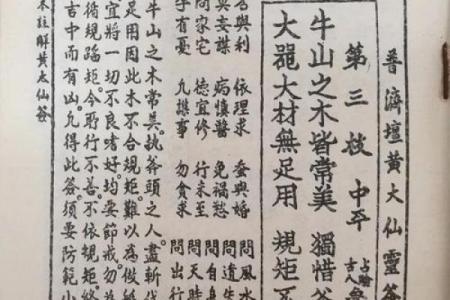 普濟壇黃大仙靈簽
第三枝 中平 占驗 古人
牛山之木皆常美 獨惜斧
大器大材無足用 規矩不
名與利 依理求 蚕與婚
與妄謀 病慎醫 免禍愁
問家宅 德宜修 行未至
子有憂 凡謀事 勿貪求
問風水
問遺失
問自身
問天時
問出行
牛山之木常美。執斧頭之人。盡斬伐
足用因此木不合規矩。難以為做
宜將一切不良嗜好。均要節戒。勿
循規蹈矩。今所行不善。不依規矩終
吉中而有凶。凡得此簽。須要防範小
註解黃大仙簽